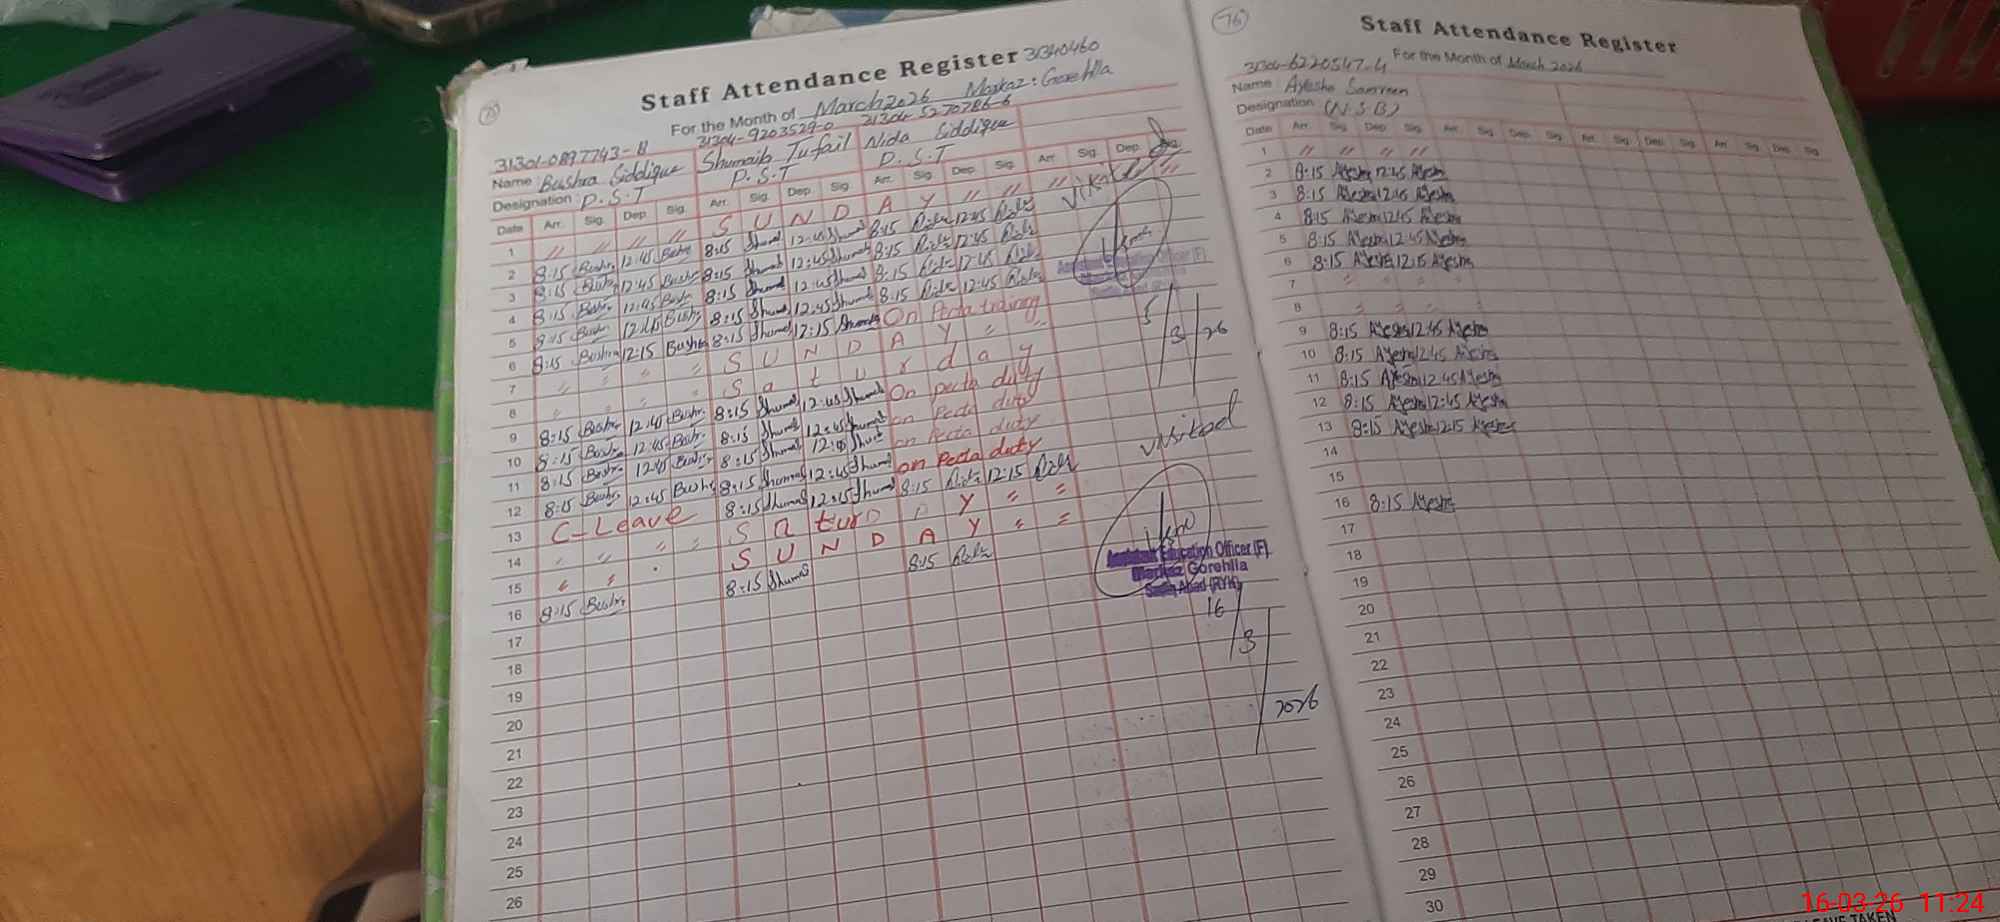 75
Staff Attendance Register 31340460
For the Month of March 2026 Markaz: Gorehlla
31301-0897743-8 31304-9203529-0 31304-5270786-6
Name Bushra Siddique Shumaila Tufail Nida Siddique
Designation P.S.T P.S.T P.S.T
Date Arr. Sig. Dep. Sig. Arr. Sig. Dep. Sig. Arr. Sig. Dep. Sig. Arr. Sig. Dep. Sig.
1 " " " " S U N D A Y " " " "
2 8:15 Bushra 12:45 Bushra 8:15 Shumail 12:45 Shumail 8:15 Nida 12:45 Nida
3 8:15 Bushra 12:45 Bushra 8:15 Shumail 12:45 Shumail 8:15 Nida 12:45 Nida
4 8:15 Bushra 12:45 Bushra 8:15 Shumail 12:45 Shumail 8:15 Nida 12:45 Nida
5 8:15 Bushra 12:45 Bushra 8:15 Shumail 12:45 Shumail 8:15 Nida 12:45 Nida
6 8:15 Bushra 12:15 Bushra 8:15 Shumail 12:15 Shumail On Pecta training
7 " " " " S U N D A Y "
8 " " " " S a t u r d a y
9 8:15 Bushra 12:45 Bushra 8:15 Shumail 12:45 Shumail On pecta duty
10 8:15 Bushra 12:45 Bushra 8:15 Shumail 12:45 Shumail on Pecta duty
11 8:15 Bushra 12:45 Bushra 8:15 Shumail on Pecta duty
12 8:15 Bushra 12:45 Bushra 8:15 Shumail 12:45 Shumail on Pecta duty
13 C-Leave 8:15 Shumail 12:15 Shumail 8:15 Nida 12:15 Nida
14 " " " " S a t u r D A Y " "
15 " " S U N D A Y " "
16 8:15 Bushra 8:15 Shumail 8:15 Nida
17
18
19
20
21
22
23
24
25
26
Visited
Assistant Education Officer (F)
5/3/26
Visited
Assistant Education Officer (F)
Markaz Gorehlla
Sadiq Abad (RYK)
16/3/2026
76
Staff Attendance Register
For the Month of March 2026
31304-6220547-4
Name Ayesha Samreen
Designation (N.S.B)
Date Arr. Sig. Dep. Sig. Arr. Sig. Dep. Sig. Arr. Sig. Dep. Sig. Arr. Sig. Dep. Sig.
1 " " " "
2 8:15 Ayesha 12:45 Ayesha
3 8:15 Ayesha 12:45 Ayesha
4 8:15 Ayesha 12:45 Ayesha
5 8:15 Ayesha 12:45 Ayesha
6 8:15 Ayesha 12:15 Ayesha
7 " " " "
8 " " " "
9 8:15 Ayesha 12:45 Ayesha
10 8:15 Ayesha 12:45 Ayesha
11 8:15 Ayesha 12:45 Ayesha
12 8:15 Ayesha 12:45 Ayesha
13 8:15 Ayesha 12:15 Ayesha
14
15
16 8:15 Ayesha
17
18
19
20
21
22
23
24
25
26
27
28
29
30
LEAVE TAKEN
16-03-26 11:24